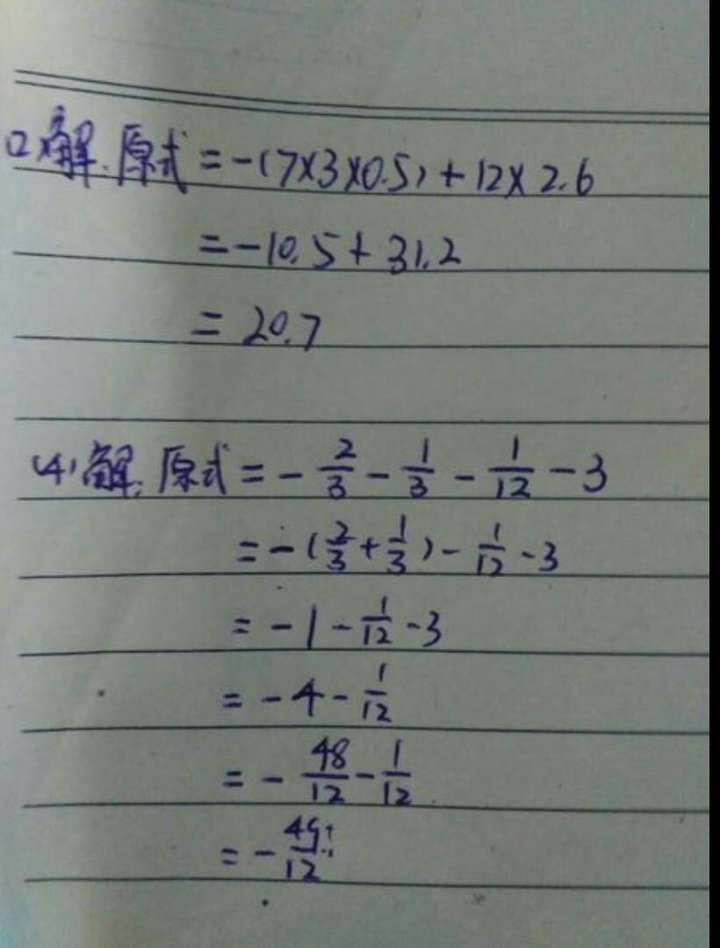 (2)解:原式=-(7×3×0.5)+12×2.6
=-10.5+31.2
=20.7
(4)解:原式=-2/3-1/3-1/12-3
=-(2/3+1/3)-1/12-3
=-1-1/12-3
=-4-1/12
=-48/12-1/12
=-49/12